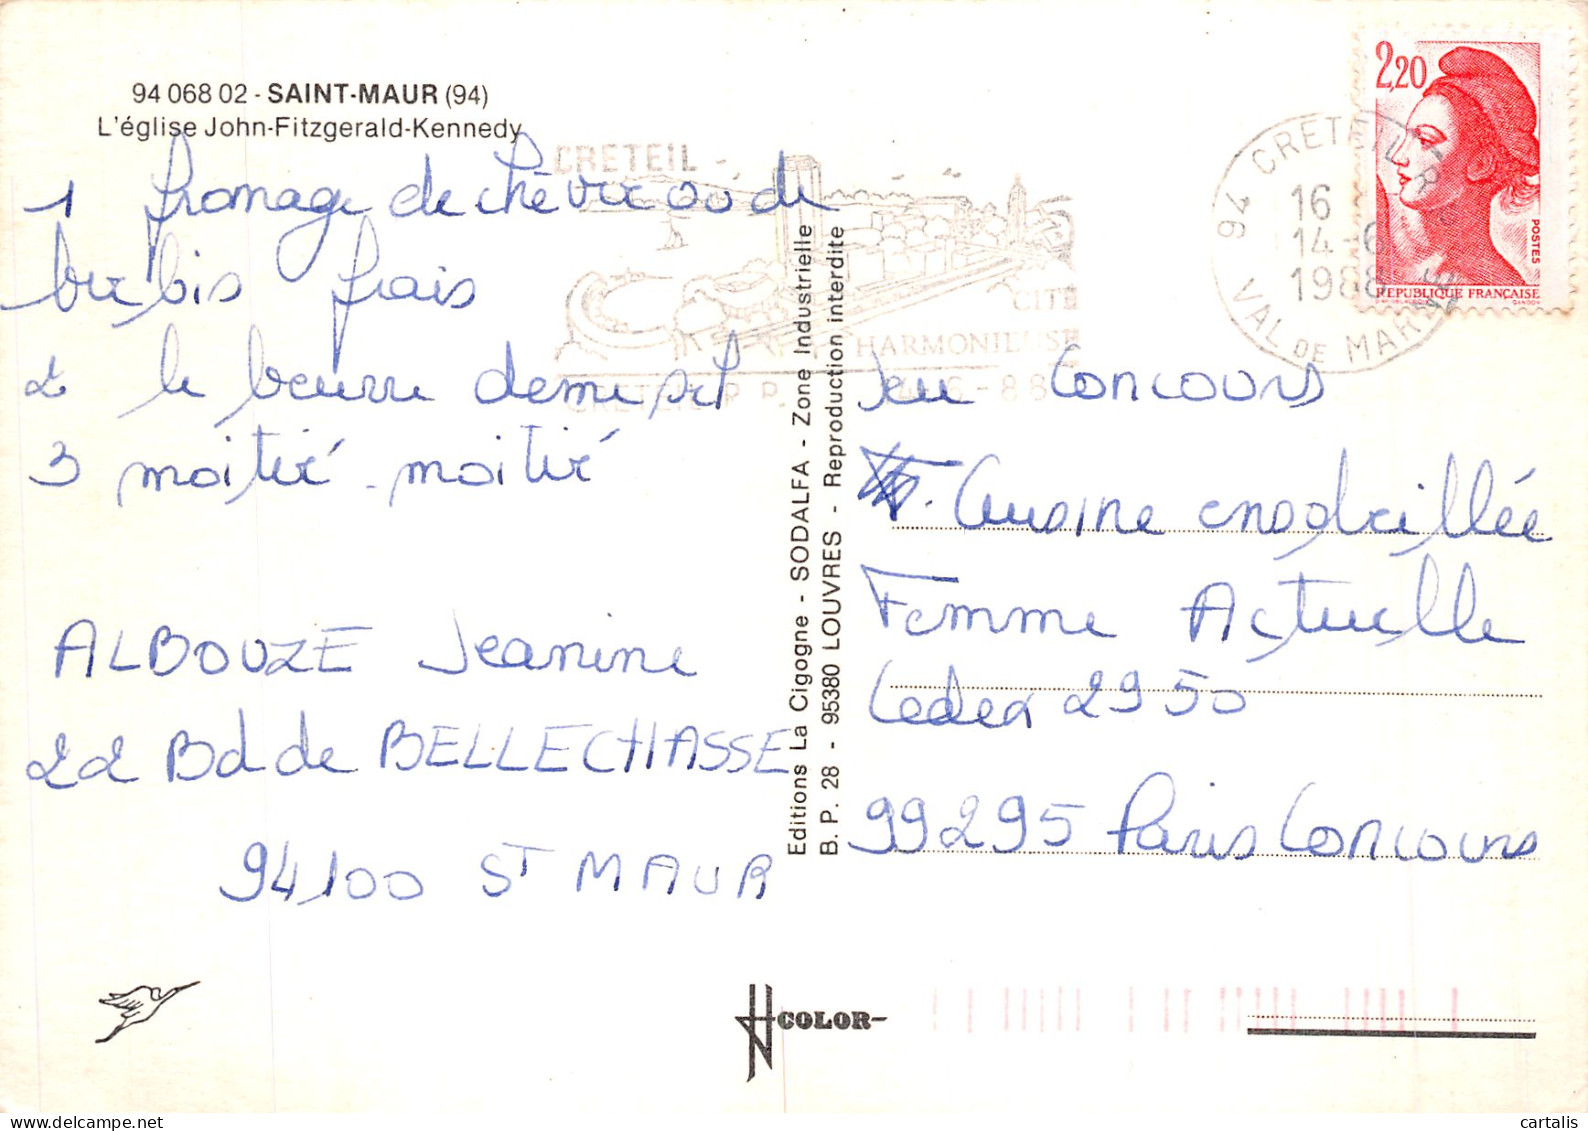 94 068 02 - SAINT-MAUR (94)
L'église John-Fitzgerald-Kennedy
1 fromage de chèvre ou de
brebis frais
2 le beurre demi sel
3 moitié - moitié
ALBOUZE Jeanine
22 Bd de BELLECHASSE
94100 ST MAUR
Editions La Cigogne - SODALFA - Zone Industrielle
B. P. 28 - 95380 LOUVRES - Reproduction interdite
CRETEIL -
CITE
HARMONIEUSE
CRETEIL R.P.
14-6-88
94 CRETEIL
16
14-6
1988
VAL DE MARNE
2,20
POSTES
REPUBLIQUE FRANÇAISE
GANDON
Jeu Concours
Cuisine ensoleillée
Femme Actuelle
Cedex 2950
99295 Paris Concours
COLOR
cartalis
delcampe.net